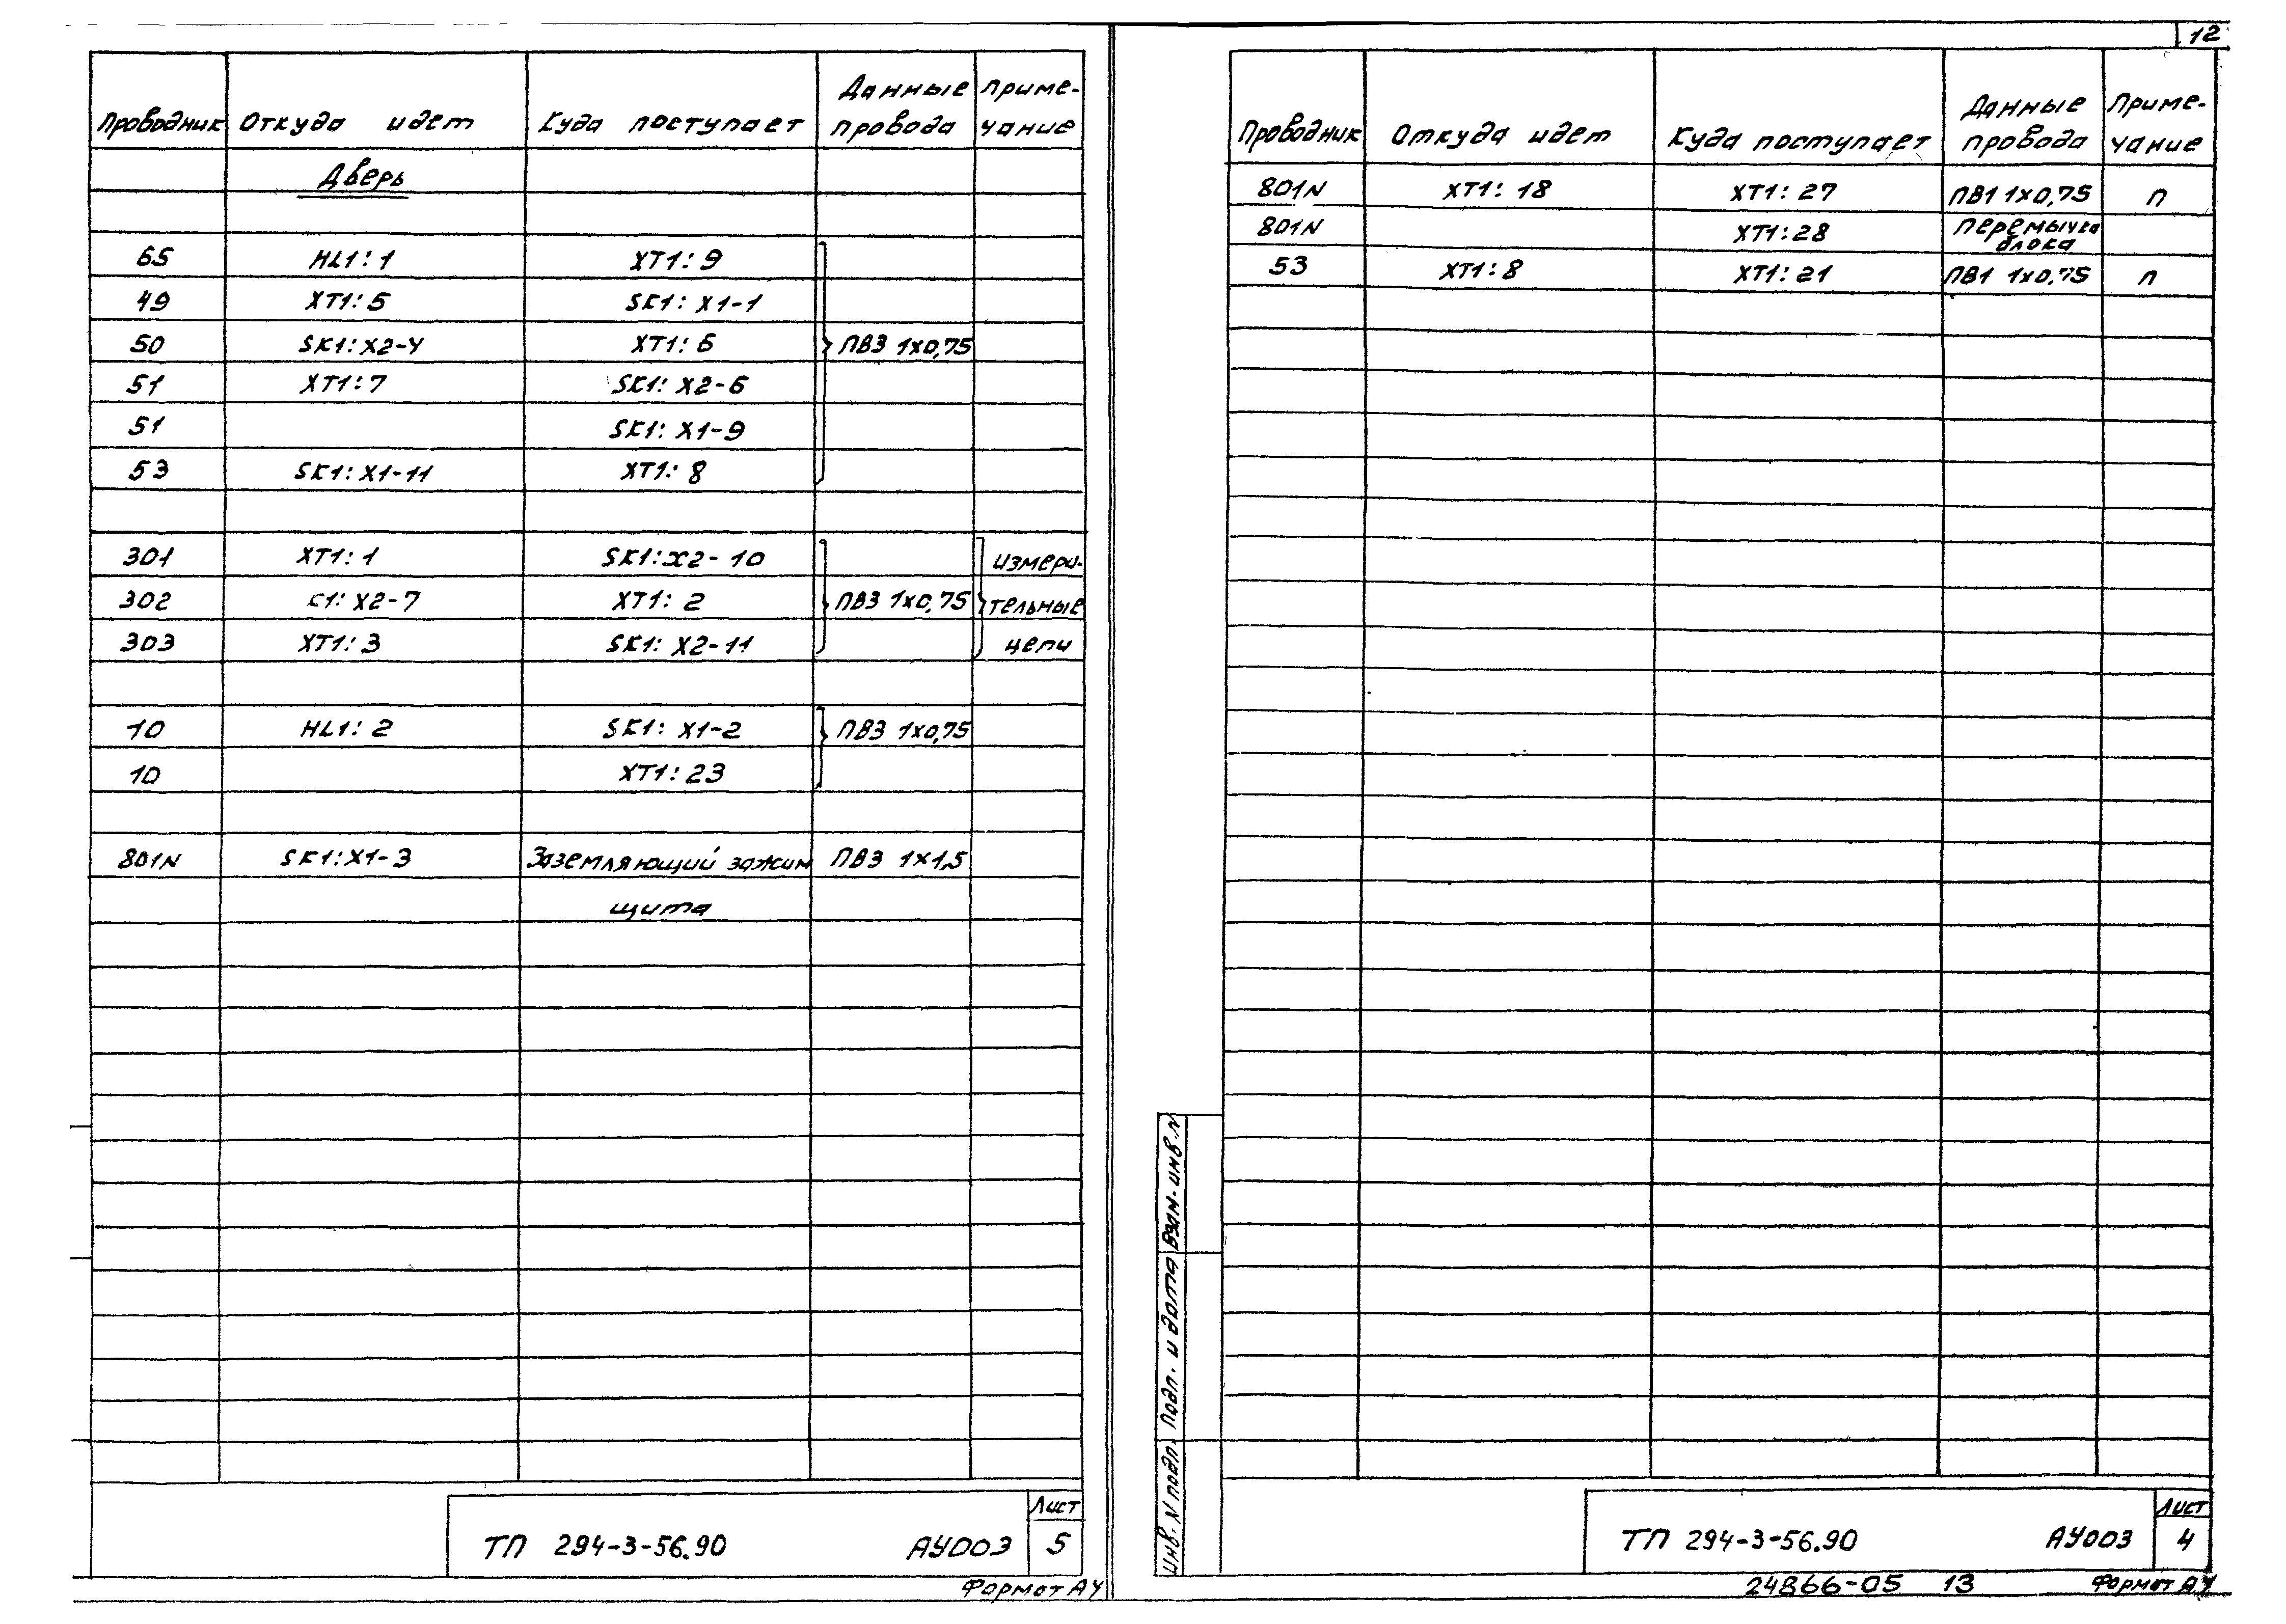 12
Проводник Откуда идет Куда поступает Данные провода Приме-чание
Дверь
65 HL1:1 XT1:9
49 XT1:5 SK1:X1-1
50 SK1:X2-4 XT1:6 ПВ3 1х0,75
51 XT1:7 SK1:X2-6
51 SK1:X1-9
53 SK1:X1-11 XT1:8
301 XT1:1 SK1:X2-10 измери-
302 X2-7 XT1:2 ПВ3 1х0,75 тельные
303 XT1:3 SK1:X2-11 цепи
10 HL1:2 SK1:X1-2 ПВ3 1х0,75
10 XT1:23
801N SK1:X1-3 Заземляющий зажим ПВ3 1х1,5
щита
Лист
ТП 294-3-56.90 АУ003 5
Формат А4
Проводник Откуда идет Куда поступает Данные провода Приме-чание
801N XT1:18 XT1:27 ПВ1 1х0,75 п
801N XT1:28 Перемычка блока
53 XT1:8 XT1:21 ПВ1 1х0,75 п
Взам. инв. N
Подп. и дата
Инв. N подл.
Лист
ТП 294-3-56.90 АУ003 4
24866-05 13 Формат А4